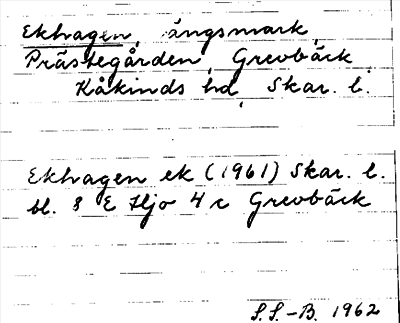 Ekhagen, ängsmark,
Prästegården, Grevbäck
Kåkinds hd, Skar. l.
Ekhagen ek (1961) Skar. l.
bl. 8 E Hjo 4 c Grevbäck
S.S.-B. 1962